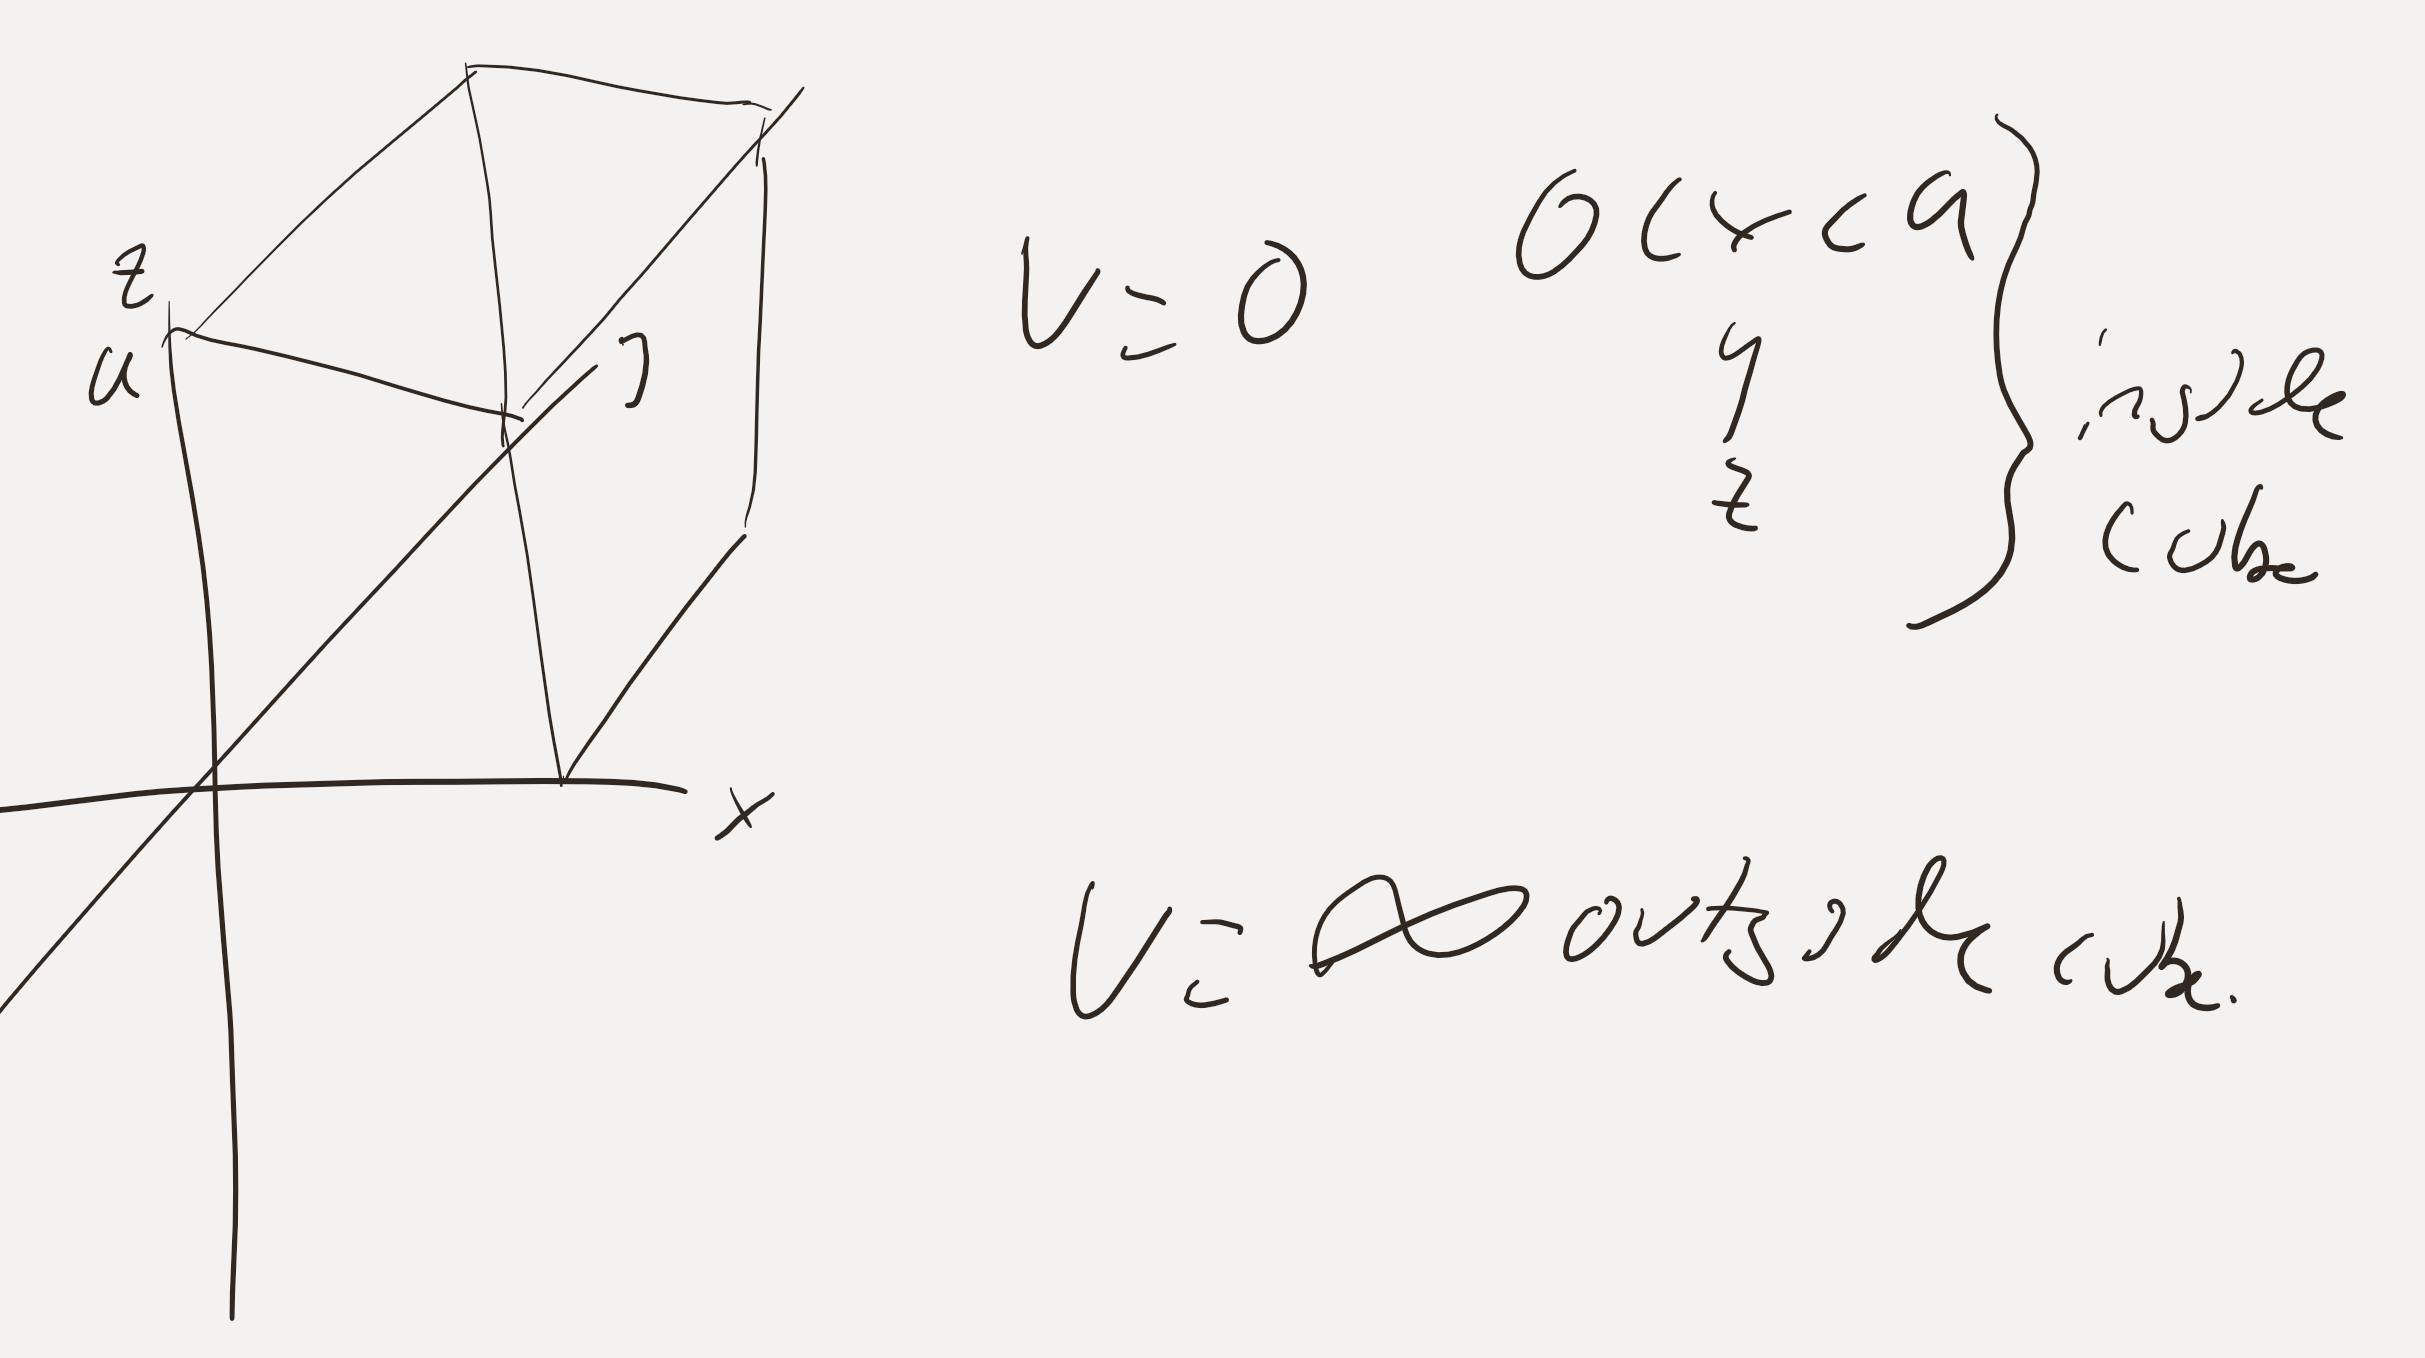 z
a
x
V = 0
0 < x < a
y
z
inside
cube
V = ∞ outside cube.